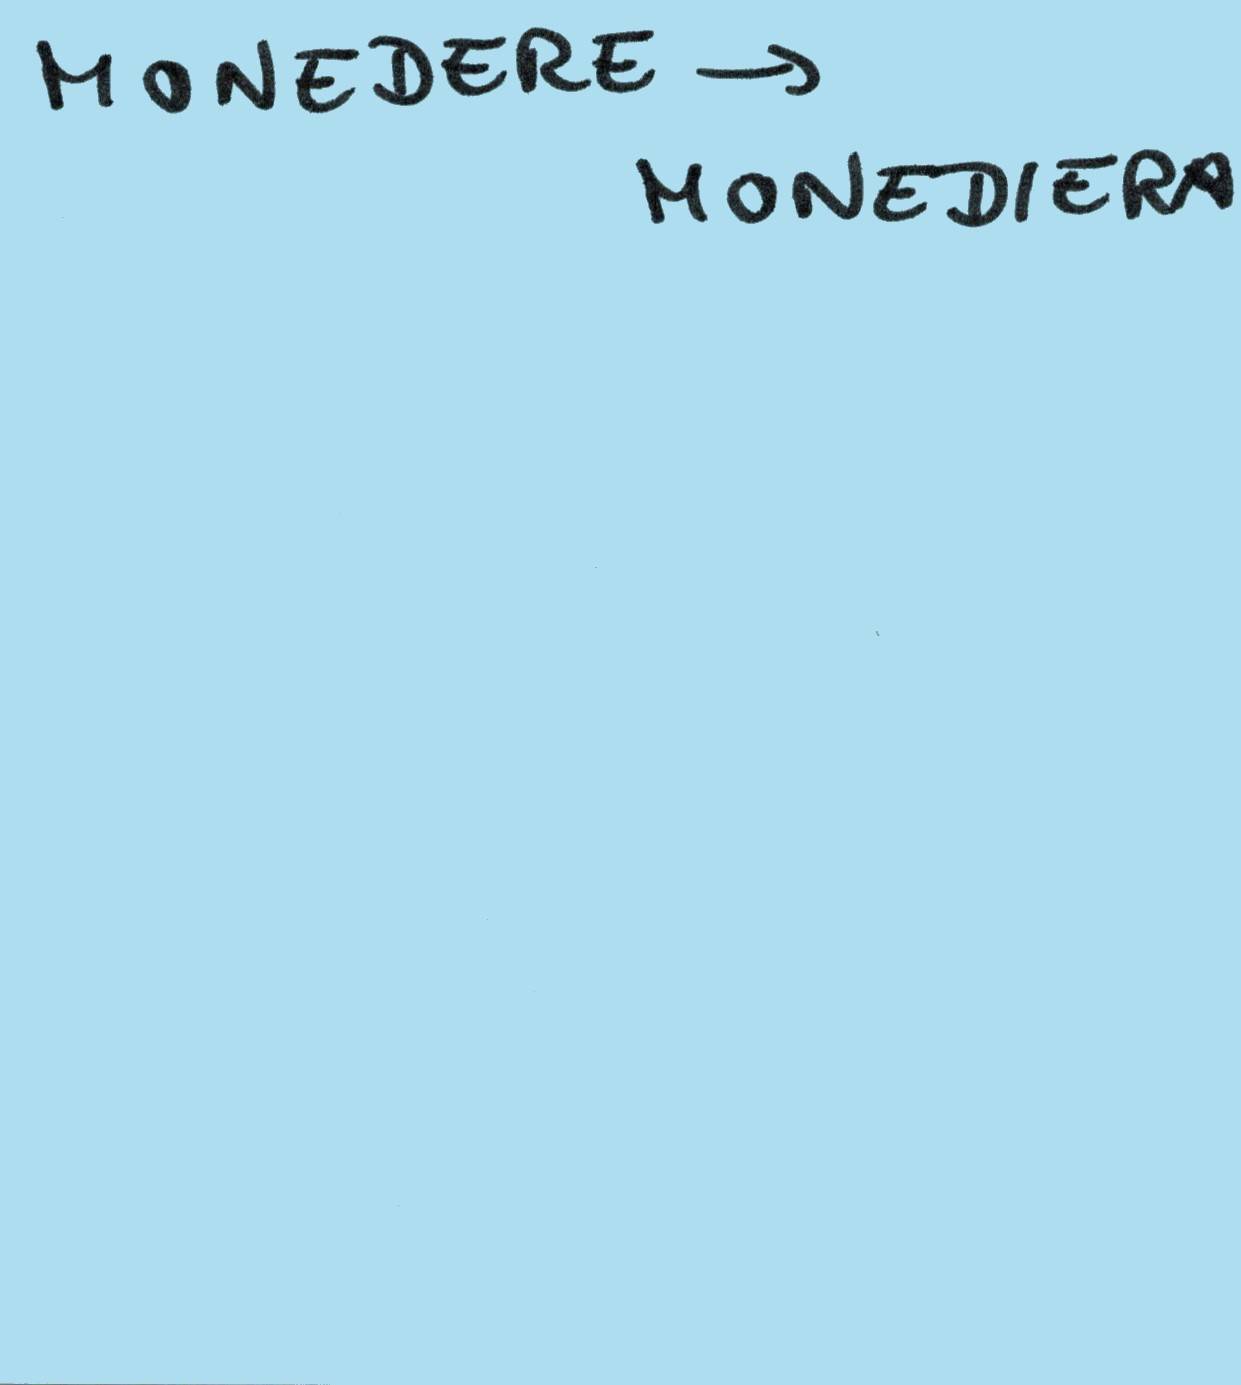 MONEDERE →
MONEDIERA